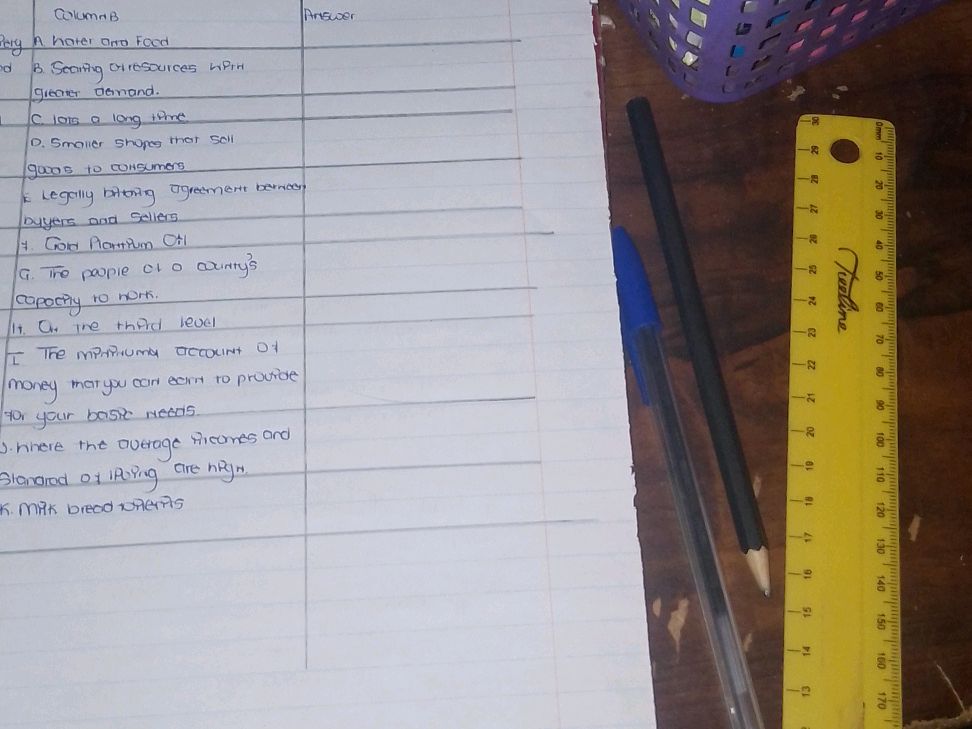 ColumnB Answer
A. Water and Food
B. resources with
greater demand.
C. lots a long time
D. Smaller shops that sell
goods to consumers
E. Legally agreement between
buyers and sellers
f. Gold Platinum Oil
G. The people of a country's
capacity to work.
H. On the third level
I The account of
money that you can earn to provide
for your basic needs.
J. where the average incomes and
of living are high.
K. Milk bread
Treeline
0mm 10 20 30 40 50 60 70 80 90 100 110 120 130 140 150 160 170
30 29 28 27 26 25 24 23 22 21 20 19 18 17 16 15 14 13